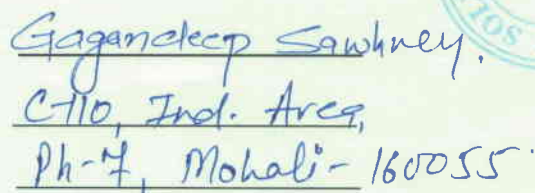 Gagandeep Sawhney.
C-110, Ind. Area,
Ph-7, Mohali- 160055